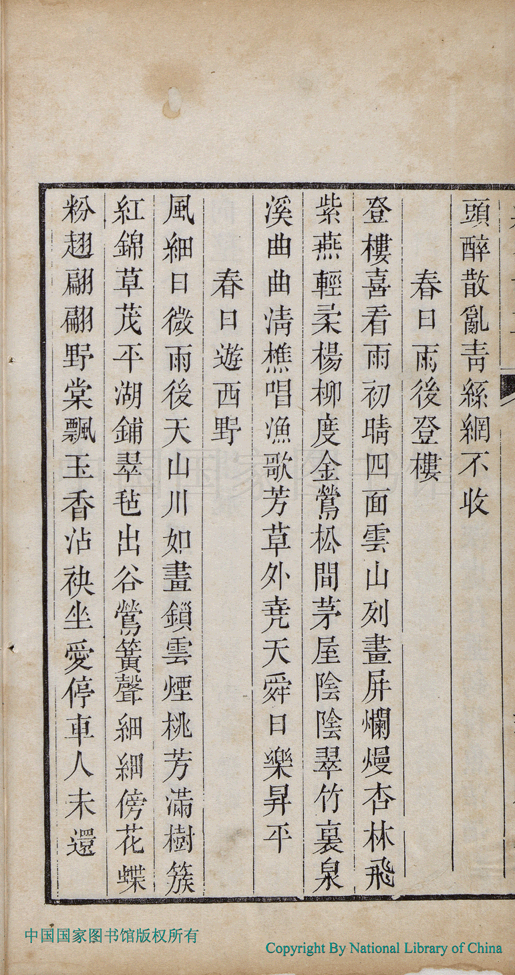 頭醉散亂青絲網不收
春日雨後登樓
登樓喜看雨初晴四面雲山列畫屏爛熳杏林飛
紫燕輕柔楊柳度金鶯松間茅屋陰陰翠竹裏泉
溪曲曲清樵唱漁歌芳草外堯天舜日樂昇平
春日遊西野
風細日微雨後天山川如畫鎖雲煙桃芳滿樹簇
紅錦草茂平湖鋪翠毡出谷鶯簧聲細細傍花蝶
粉翅翩翩野棠飄玉香沾袂坐愛停車人未還
中国国家图书馆版权所有
Copyright By National Library of China